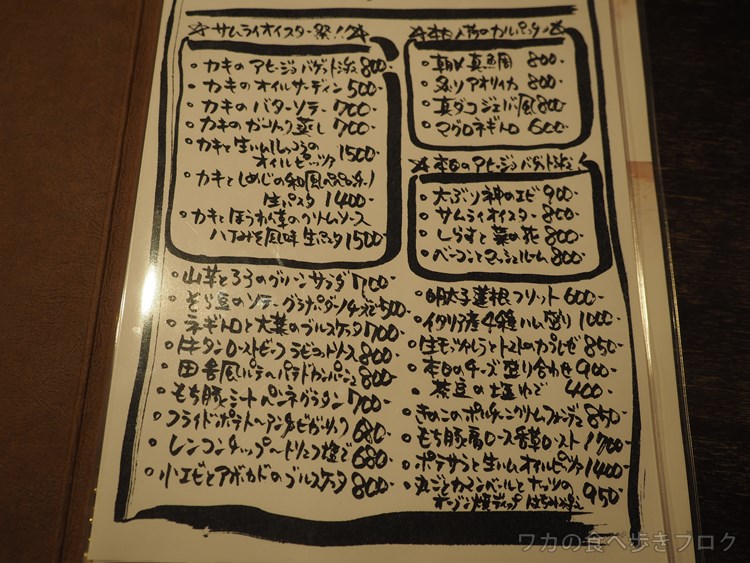 ☆サムライオイスター祭!!☆
・カキのアヒージョバゲット添え 800-
・カキのオイルサーディン 500-
・カキのバターソテー 700-
・カキのガーリック蒸し 700-
・カキと生ハムしっとうの
オイルピッツァ 1500-
・カキとしめじの和風ペペロンチーノ
生パスタ 1400-
・カキとほうれん草のクリームソース
八丁みそ風味 生パスタ 1500-
・山芋とろろのグリーンサラダ 700-
・そら豆のソテーグラナパダーノチーズで 500-
・ネギトロと大葉のブルスケッタ 700-
・牛タンローストビーフ ラビゴットソース 800-
・田舎風パテ〜パテドカンパーニュ 800-
・もち豚ミートペンネグラタン 700-
・フライドポテト〜アンチョビガーリック 680-
・レンコンチップ〜トリュフ塩で 680-
・小エビとアボカドのブルスケッタ 800-
☆本日入荷のカルパッチョ☆
・朝〆真鯛 800-
・炙りアオリイカ 800-
・真ダコジェノバ風 800-
・マグロネギトロ 600-
☆本日のアヒージョバゲット添え
・大ぶり神のエビ 900-
・サムライオイスター 800-
・しらすと菜の花 800-
・ベーコンとマッシュルーム 800-
・明太子蓮根フリット 600-
・イタリア産4種ハム盛り 1000-
・生モッツァレラとトマトのカプレーゼ 850-
・本日のチーズ盛り合わせ 900-
・茶豆の塩ゆで 400-
・きのこのポルチーニクリームフォンデュ 850-
・もち豚肩ロース香草ロースト 1700-
・ポテサラと生ハムオイルピッツァ 1400-
・丸ごとカマンベールとナッツの
オーブン焼ディップ はちみつ添え 950-
ワカの食べ歩きブログ